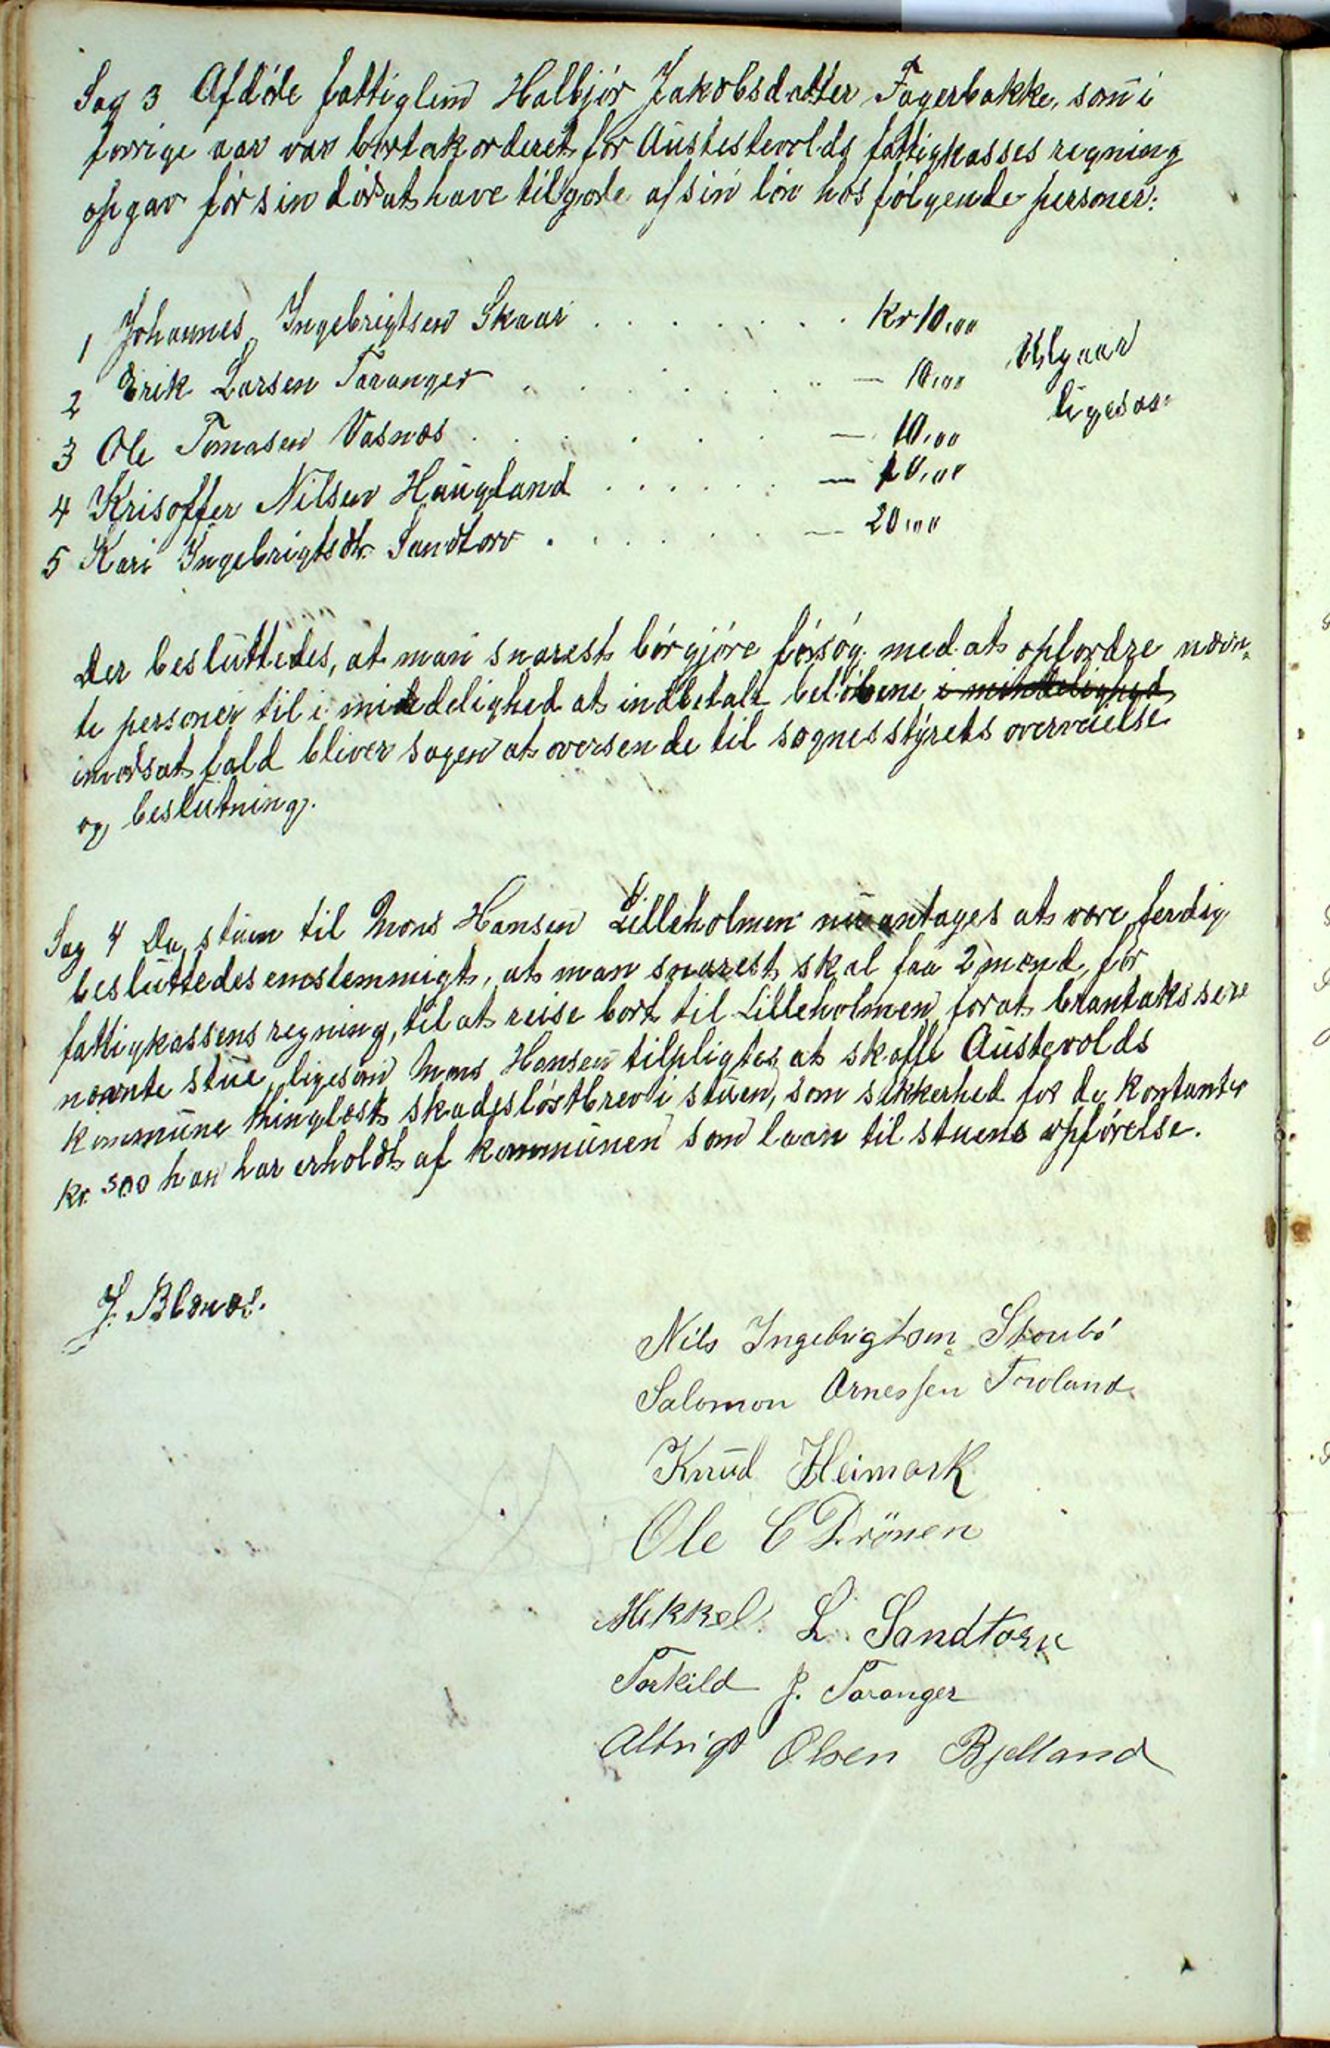 Sag 3 Afdöde fattiglem Halbjör Jakobsdatter Fagerbakke, som i
forrige aar var bortakorderet for Austestevolds fattigkasses regning
opgav för sin död at have tilgode af sin lön hos fölgende personer:
1 Johannes Ingebrigtsen Skaar . . . . . . . Kr 10,00 Udgaar
2 Erik Larsen Taranger . . . . . . . — 10,00 ligesaa
3 Ole Tomasen Vasnæs . . . . . . — 10,00
4 Krisoffer Nilsen Haugland . . . . . . — 10,00
5 Kari Ingebrigtsdtr. Sandtorv . . . . . . — 20,00
Der besluttedes, at man snarest bör gjöre försög med at opfordre nævn-
te personer til i mindelighed at indbetale belöbene i mindelighed
imodsat fald bliver sagen at oversende til sognesstyrets overveielse
og beslutning.
Sag 4 Da stuen til Mons Hansen Lilleholmen nu antages at være ferdig
besluttedes enstemmigt, at man snarest skal faa 2 mænd, for
fattigkassens regning, til at reise bort til Lilleholmen forat brantakssere
nævnte stue, ligesom Mons Hansen tilpligtes at skaffe Austevolds
kommune thinglæst skadeslöstbrev i stuen, som sikkerhed for de kontanter
kr. 300 han har erholdt af kommunen som laan til stuens opförelse.
J. Blænæs.
Nils Ingebrigtsen Stoubö
Salomon Arnessen Troland
Knud Heimark
Ole C Drönen
Mikkel L. Sandtorv
Torkild J. Taranger
Albrigt Olsen Bjelland